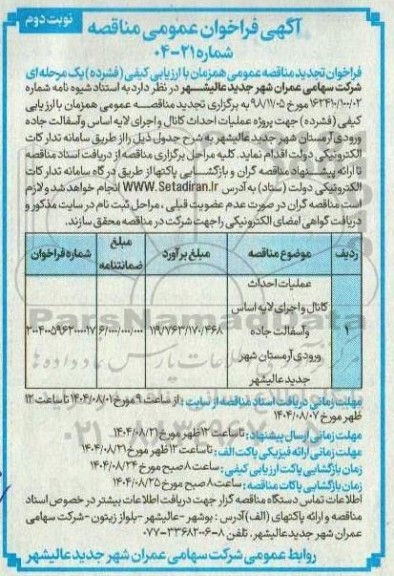 نوبت دوم
آگهی فراخوان عمومی مناقصه
شماره ۲۱-۰۴
فراخوان تجدید مناقصه عمومی همزمان با ارزیابی کیفی (فشرده) یک مرحله ای
شرکت سهامی عمران شهر جدید عالیشهر در نظر دارد به استناد شیوه نامه شماره
۱۶۲۴۱۰/۱۰۰/۰۲ مورخ ۹۸/۱۱/۰۵ به برگزاری تجدید مناقصه عمومی همزمان با ارزیابی
کیفی (فشرده) جهت پروژه عملیات احداث کانال و اجرای لایه اساس وآسفالت جاده
ورودی آرمستان شهر جدید عالیشهر به شرح جدول ذیل را از طریق سامانه تدارکات
الکترونیکی دولت اقدام نماید. کلیه مراحل برگزاری مناقصه از دریافت اسناد مناقصه
تا ارائه پیشنهاد مناقصه گران و بازگشایی پاکتها از طریق درگاه سامانه تدارکات
الکترونیکی دولت (ستاد) به آدرس WWW.Setadiran.Ir انجام خواهد شد و لازم
است مناقصه گران در صورت عدم عضویت قبلی، مراحل ثبت نام در سایت مذکور و
دریافت گواهی امضای الکترونیکی را جهت شرکت در مناقصه محقق سازند.
ردیف موضوع مناقصه مبلغ برآورد مبلغ ضمانتنامه شماره فراخوان
۱ عملیات احداث
کانال و اجرای لایه اساس
وآسفالت جاده
ورودی آرمستان شهر
جدید عالیشهر
۱۱۹/۷۶۳/۱۷۰/۴۶۸ ۶/۰۰۰/۰۰۰/۰۰۰ ۲۰۰۴۰۰۵۹۶۲۰۰۰۰۱۷
ParsNamadData
مهلت زمانی دریافت اسناد مناقصه از سایت: از ساعت ۹ مورخ ۱۴۰۴/۰۸/۰۱ تا ساعت ۱۲
ظهر مورخ ۱۴۰۴/۰۸/۰۷
مهلت زمانی ارسال پیشنهاد: تا ساعت ۱۲ ظهر مورخ ۱۴۰۴/۰۸/۲۱
مهلت زمانی ارائه فیزیکی پاکت الف: تا ساعت ۱۲ ظهر مورخ ۱۴۰۴/۰۸/۲۱
زمان بازگشایی پاکت ارزیابی کیفی: ساعت ۸ صبح مورخ ۱۴۰۴/۰۸/۲۴
زمان بازگشایی پاکات مناقصه: ساعت ۸ صبح مورخ ۱۴۰۴/۰۸/۲۵
اطلاعات تماس دستگاه مناقصه گزار جهت دریافت اطلاعات بیشتر در خصوص اسناد
مناقصه و ارائه پاکتهای (الف) آدرس: بوشهر -عالیشهر -بلوار زیتون -شرکت سهامی
عمران شهر جدید عالیشهر، تلفن ۸-۳۳۶۸۲۰۰۶-۰۷۷
روابط عمومی شرکت سهامی عمران شهر جدید عالیشهر